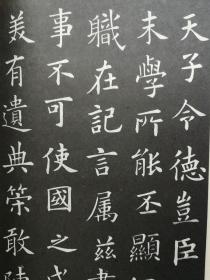 天子令德豈臣
末學所能丕顯
職在記言属茲書
事不可使國之盛
美有遺典策敢陳